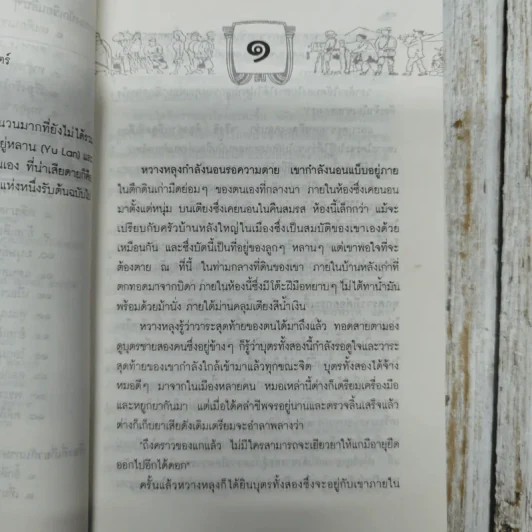 ๑
ตร์
นวนมากที่ยังไม่ได้รวม
ยู่หลาน (Yu Lan) และ
นเอง ที่น่าเสียดายก็คือ
แห่งหนึ่งรับต้นฉบับไป
หวางหลุงกำลังนอนรอความตาย เขากำลังนอนแบ็บอยู่ภาย
ในตึกดินเก่ามืดย่อมๆ ของตนเองที่กลางนา ภายในห้องซึ่งเคยนอน
มาตั้งแต่หนุ่ม บนเตียงซึ่งเคยนอนในคืนสมรส ห้องนี้เล็กกว่า แม้จะ
เปรียบกับครัวบ้านหลังใหญ่ในเมืองซึ่งเป็นสมบัติของเขาเองด้วย
เหมือนกัน และซึ่งบัดนี้เป็นที่อยู่ของลูกๆ หลานๆ แต่เขาพอใจที่จะ
ต้องตาย ณ ที่นี้ ในท่ามกลางที่ดินของเขา ภายในบ้านหลังเก่าที่
ตกทอดมาจากบิดา ภายในห้องนี้ซึ่งมีโต๊ะฝีมือหยาบๆ ไม่ได้ทาน้ำมัน
พร้อมด้วยม้านั่ง ภายใต้ม่านคลุมเตียงสีน้ำเงิน
หวางหลุงรู้ว่าวาระสุดท้ายของตนได้มาถึงแล้ว ทอดสายตามอง
ดูบุตรชายสองคนซึ่งอยู่ข้างๆ ก็รู้ว่าบุตรทั้งสองนี้กำลังรอดูใจและวาระ
สุดท้ายของเขากำลังใกล้เข้ามาแล้วทุกขณะจิต บุตรทั้งสองได้จ้าง
หมอดีๆ มาจากในเมืองหลายคน หมอเหล่านี้ต่างก็เตรียมเครื่องมือ
และหยูกยากันมา แต่เมื่อได้คลำชีพจรอยู่นานและตรวจลิ้นเสร็จแล้ว
ต่างก็เก็บยาเสียดังเดิมเตรียมจะอำลาพลางว่า
"ถึงคราวของแกแล้ว ไม่มีใครสามารถจะเยียวยาให้แกมีอายุยืด
ออกไปอีกได้ดอก"
ครั้นแล้วหวางหลุงก็ได้ยินบุตรทั้งสองซึ่งจะอยู่กับเขาภายใน